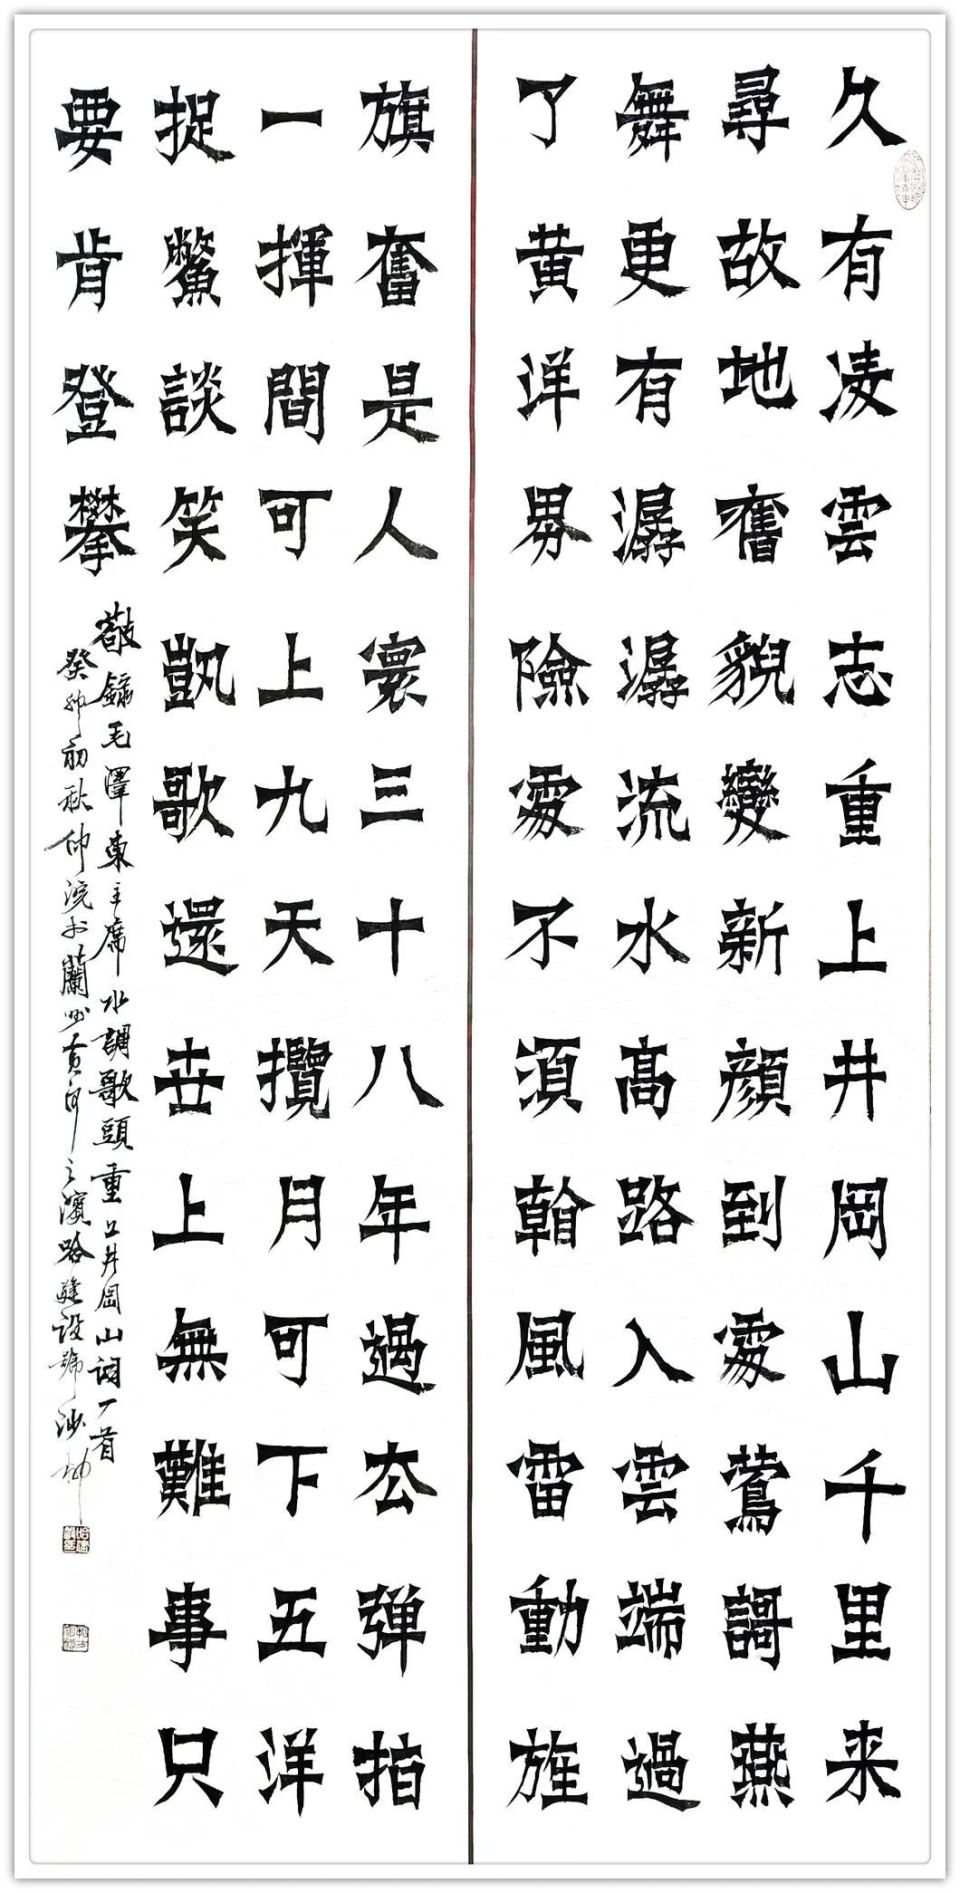 久有凌雲志重上井岡山千里来
尋故地舊貌變新顔到處鶯謌燕
舞更有潺潺流水髙路入雲端過
了黄洋界險處不須看風雷動旌
旗奮是人寰三十八年過去弹指
一揮間可上九天攬月可下五洋
捉鱉談笑凱歌還世上無難事只
要肯登攀
敬録毛澤東主席水調歌頭重上井岡山詞一首
癸卯初秋仲浣於蘭州黄河之濱哈建設號沙坤